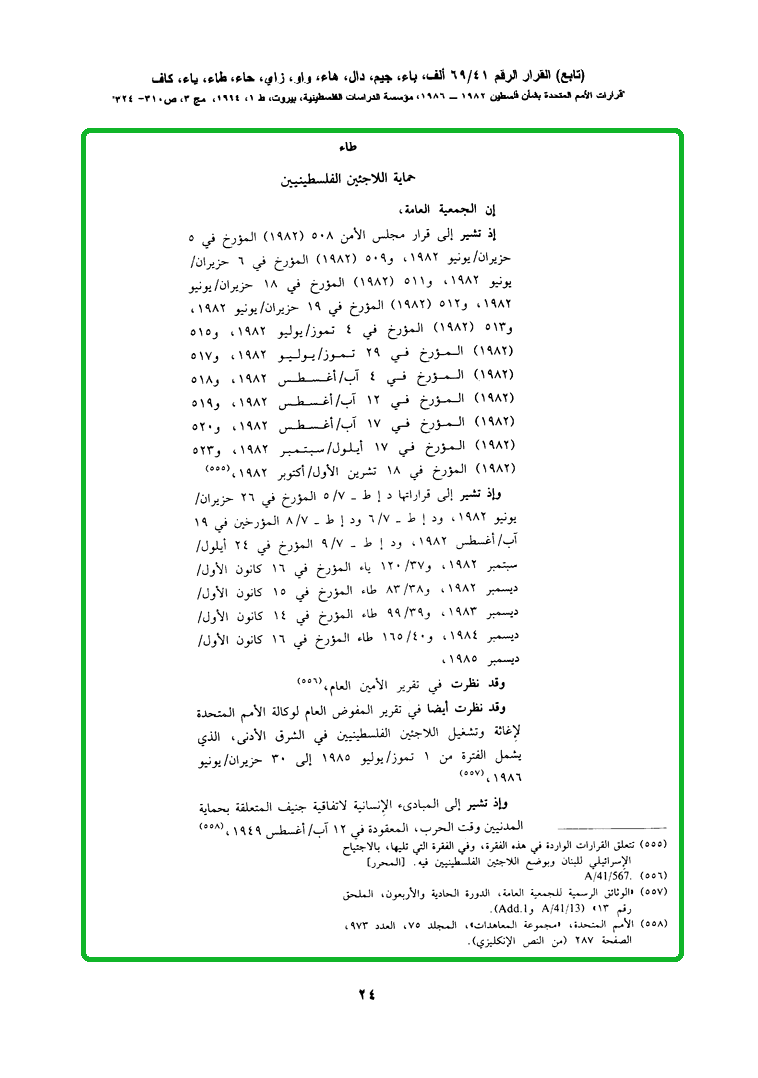 (تابع) القرار الرقم ٦٩/٤١ ألف، باء، جيم، دال، هاء، واو، زاي، حاء، طاء، ياء، كاف
"قرارات الأمم المتحدة بشأن فلسطين ١٩٨٢ – ١٩٨٦، مؤسسة الدراسات الفلسطينية، بيروت، ط ١، ١٩٩٤، مج ٣، ص ٣١٠– ٣٢٤"
طاء
حماية اللاجئين الفلسطينيين
إن الجمعية العامة،
إذ تشير إلى قرار مجلس الأمن ٥٠٨ (١٩٨٢) المؤرخ في ٥
حزيران/يونيو ١٩٨٢، و٥٠٩ (١٩٨٢) المؤرخ في ٦ حزيران/
يونيو ١٩٨٢، و٥١١ (١٩٨٢) المؤرخ في ١٨ حزيران/يونيو
١٩٨٢، و٥١٢ (١٩٨٢) المؤرخ في ١٩ حزيران/يونيو ١٩٨٢،
و٥١٣ (١٩٨٢) المؤرخ في ٤ تموز/يوليو ١٩٨٢، و٥١٥
(١٩٨٢) المؤرخ في ٢٩ تموز/يوليو ١٩٨٢، و٥١٧
(١٩٨٢) المؤرخ في ٤ آب/أغسطس ١٩٨٢، و٥١٨
(١٩٨٢) المؤرخ في ١٢ آب/أغسطس ١٩٨٢، و٥١٩
(١٩٨٢) المؤرخ في ١٧ آب/أغسطس ١٩٨٢، و٥٢٠
(١٩٨٢) المؤرخ في ١٧ أيلول/سبتمبر ١٩٨٢، و٥٢٣
(١٩٨٢) المؤرخ في ١٨ تشرين الأول/أكتوبر ١٩٨٢،(٥٥٥)
وإذ تشير إلى قراراتها د إ ط – ٥/٧ المؤرخ في ٢٦ حزيران/
يونيو ١٩٨٢، ود إ ط – ٦/٧ ود إ ط – ٨/٧ المؤرخين في ١٩
آب/أغسطس ١٩٨٢، ود إ ط – ٩/٧ المؤرخ في ٢٤ أيلول/
سبتمبر ١٩٨٢، و١٢٠/٣٧ ياء المؤرخ في ١٦ كانون الأول/
ديسمبر ١٩٨٢، و٨٣/٣٨ طاء المؤرخ في ١٥ كانون الأول/
ديسمبر ١٩٨٣، و٩٩/٣٩ طاء المؤرخ في ١٤ كانون الأول/
ديسمبر ١٩٨٤، و١٦٥/٤٠ طاء المؤرخ في ١٦ كانون الأول/
ديسمبر ١٩٨٥،
وقد نظرت في تقرير الأمين العام،(٥٥٦)
وقد نظرت أيضا في تقرير المفوض العام لوكالة الأمم المتحدة
لإغاثة وتشغيل اللاجئين الفلسطينيين في الشرق الأدنى، الذي
يشمل الفترة من ١ تموز/يوليو ١٩٨٥ إلى ٣٠ حزيران/يونيو
١٩٨٦،(٥٥٧)
وإذ تشير إلى المبادىء الإنسانية لاتفاقية جنيف المتعلقة بحماية
المدنيين وقت الحرب، المعقودة في ١٢ آب/أغسطس ١٩٤٩،(٥٥٨)
(٥٥٥) تتعلق القرارات الواردة في هذه الفقرة، وفي الفقرة التي تليها، بالاجتياح
الإسرائيلي للبنان وبوضع اللاجئين الفلسطينيين فيه. [المحرر]
(٥٥٦) A/41/567.
(٥٥٧) «الوثائق الرسمية للجمعية العامة، الدورة الحادية والأربعون، الملحق
رقم ١٣» (A/41/13 وAdd.1).
(٥٥٨) الأمم المتحدة، «مجموعة المعاهدات»، المجلد ٧٥، العدد ٩٧٣،
الصفحة ٢٨٧ (من النص الإنكليزي).
٢٤